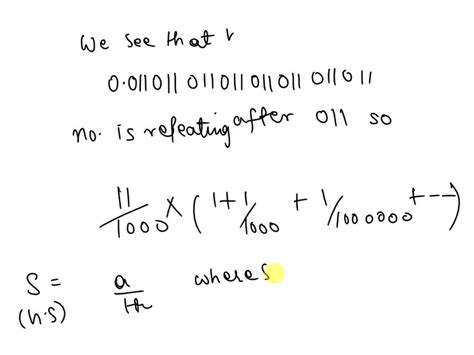 We see that
0.011011 011011011011 011011
no. is repeating after 011 so
11/1000 × (1+1/1000 + 1/1000000 + --)
S = a/1-r where S
(h.s)